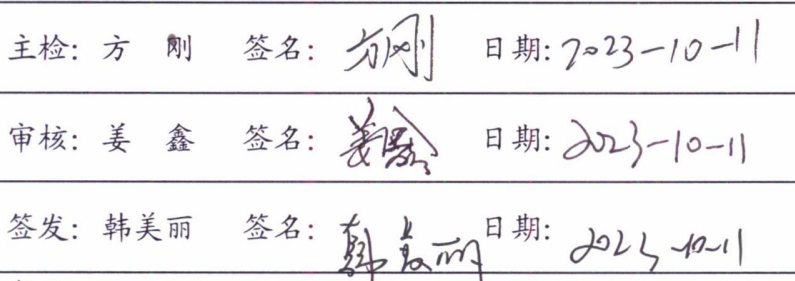 主检: 方 刚 签名: 方刚 日期: 2023-10-11
审核: 姜 鑫 签名: 姜鑫 日期: 2023-10-11
签发: 韩美丽 签名: 韩美丽 日期: 2023-10-11